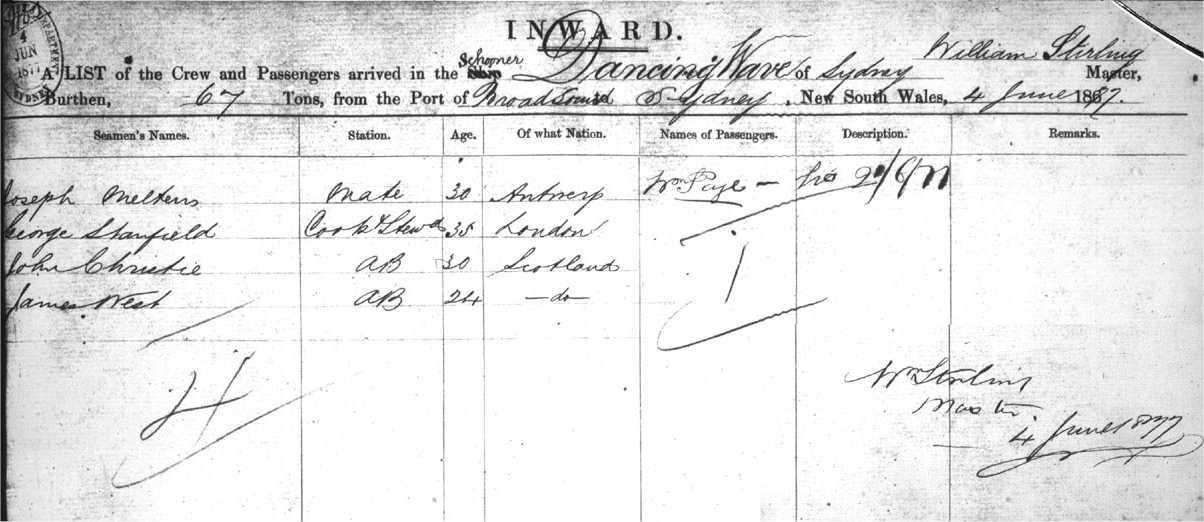 4
JUN
1877
INWARD.
William Stirling
A LIST of the Crew and Passengers arrived in the Ship Schooner Dancing Wave of Sydney Master,
Burthen, 67 Tons, from the Port of Broad Sound Sydney, New South Wales, 4 June 1877.
Seamen's Names. Station. Age. Of what Nation. Names of Passengers. Description. Remarks.
Joseph Meltens Mate 30 Antwerp Wm Page —
George Stanfield Cook & Stewd 35 London
John Christie AB 30 Scotland
James West AB 24 — do —
4 1
Wm Stirling
Master
4 June 1877